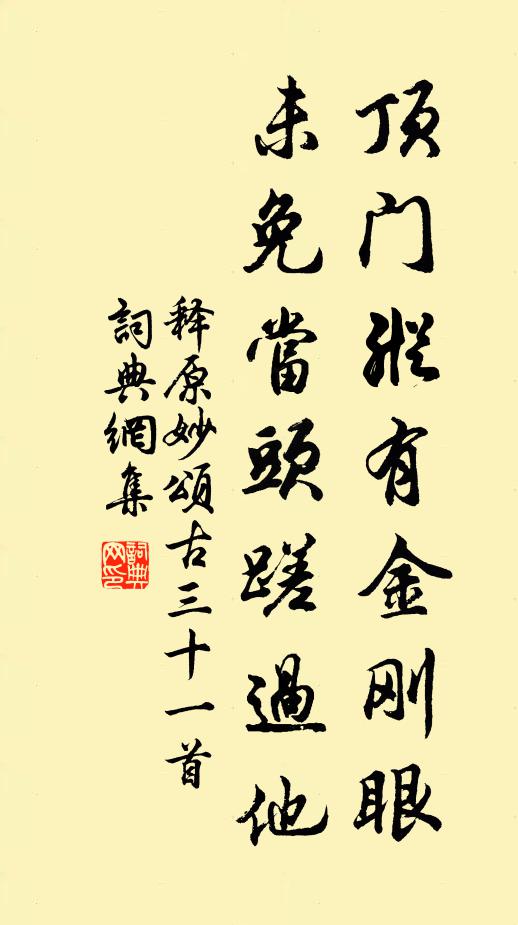 顶门纵有金刚眼
未免當頭蹉過他
释原妙頌古三十一首
詞典網集
詞典网印